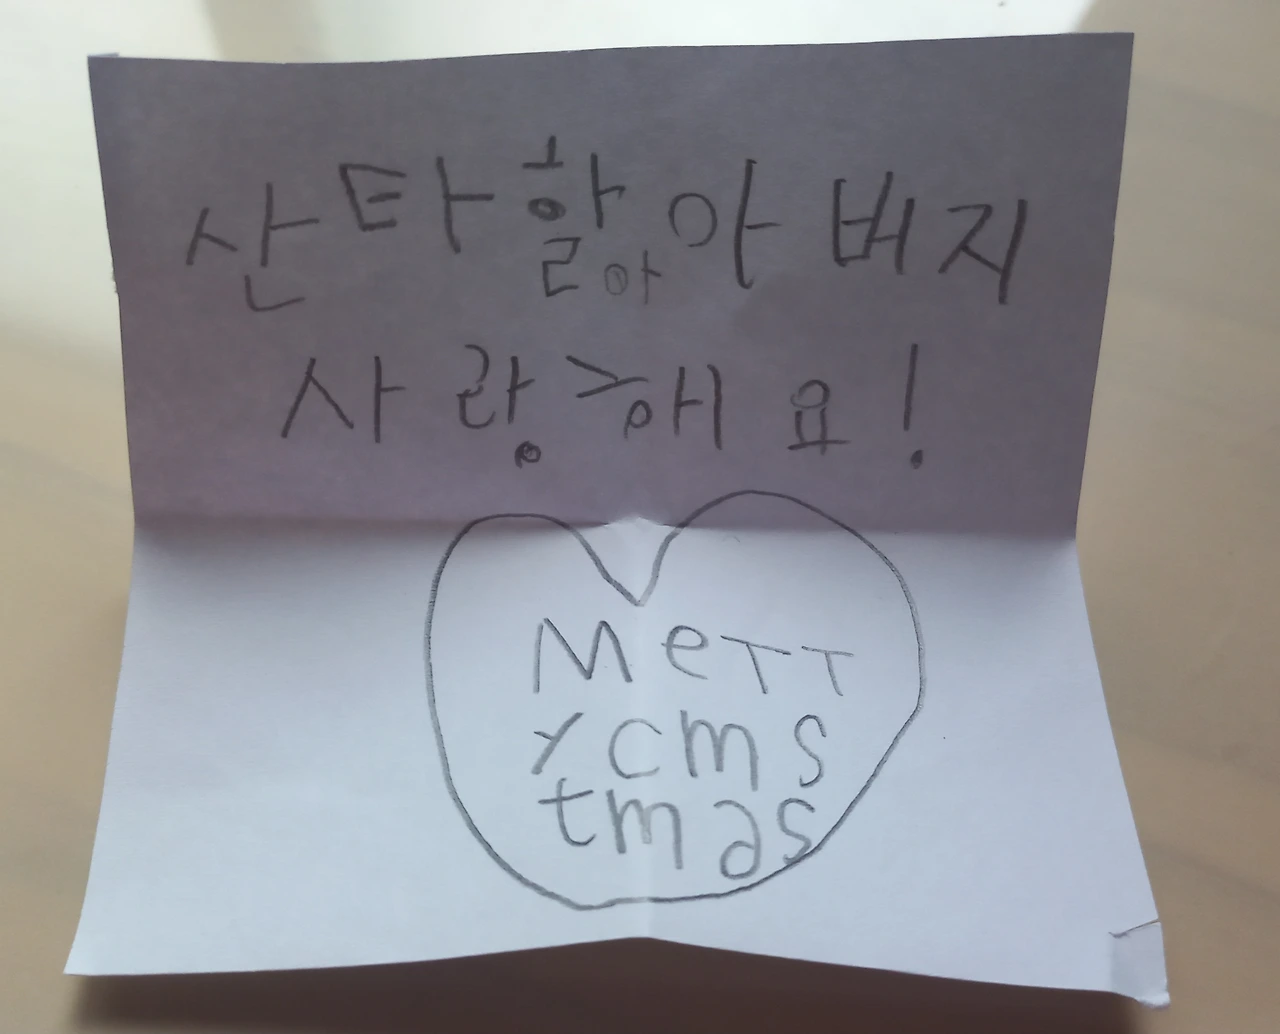 산타할아아버지
사랑해요!
MeTT
ycms
tmas